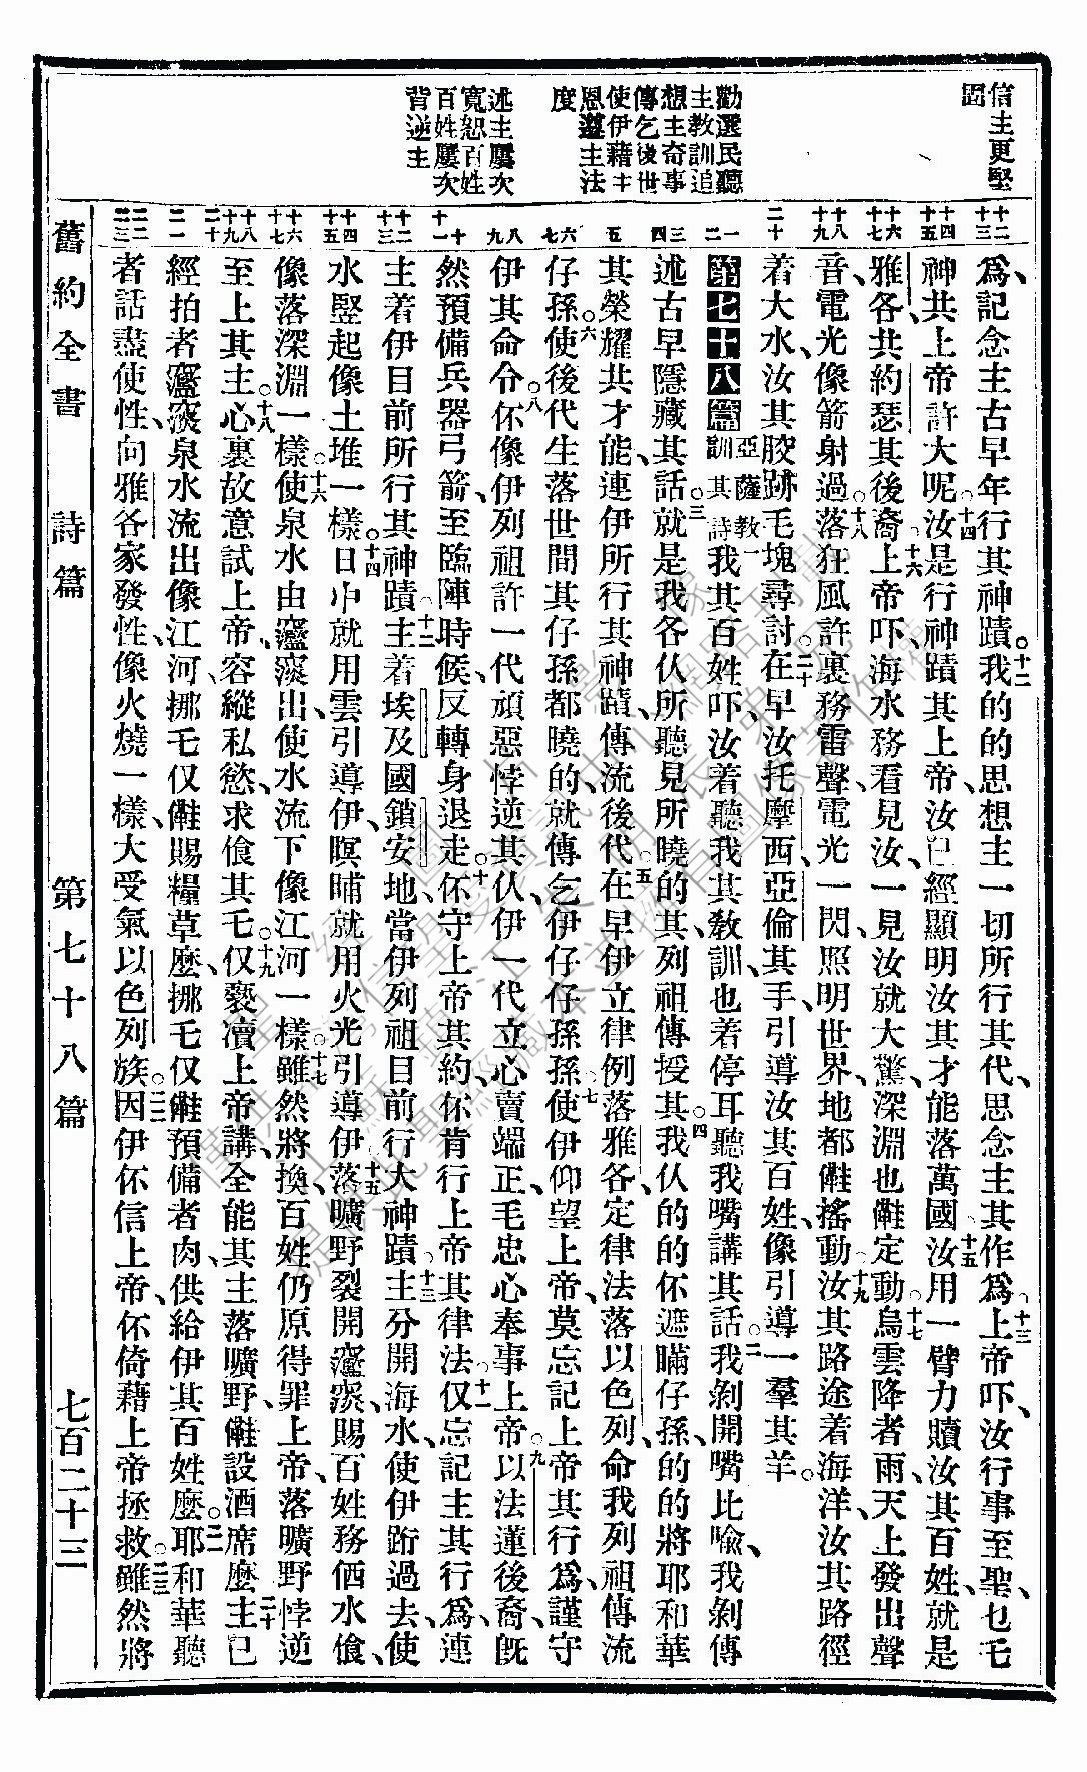 信主更堅
固
勸選民聽
主教訓追
想主奇事
傳乞後世
使伊藉主
恩遵主法
度
述主屢次
寬恕百姓
百姓屢次
背逆主
十二 十三
爲、記念主古早年行其神蹟。十二我的的思想主一切所行其代、思念主其作爲。十三上帝吓、汝行事至聖、乜乇
十四 十五
神共上帝許大呢。十四汝是行神蹟其上帝、汝已經顯明汝其才能落萬國。十五汝用一臂力贖汝其百姓、就是
十六 十七
雅各共約瑟其後裔。十六上帝吓、海水務看見汝、一見汝就大驚、深淵也𣍐定動。十七烏雲降者雨、天上發出聲
十八 十九
音、電光像箭射過。十八落狂風許裏務雷聲、電光一閃、照明世界、地都𣍐搖動。十九汝其路途着海洋、汝其路徑
二十
着大水、汝其胶跡乇塊尋討。二十在早汝托摩西、亞倫其手、引導汝其百姓、像引導一羣其羊。
一 二
第七十八篇 亞薩教訓其詩 一我其百姓吓、汝着聽我其教訓、也着停耳聽我嘴講其話。二我剝開嘴比喩、我剝傳
三 四
述古早隱藏其話。三就是我各仈所聽見所曉的其、列祖傳授其。四我仈的的伓遮瞞仔孫、的的將耶和華
五
其榮耀共才能、連伊所行其神蹟、傳流後代。五在早伊立律例落雅各、定律法落以色列、命我列祖傳流
六 七
仔孫。六使後代生落世間其仔孫都曉的、就傳乞伊仔仔孫孫。七使伊仰望上帝、莫忘記上帝其行爲、謹守
八 九
伊其命令。八伓像伊列祖許一代頑惡悖逆其仈、伊一代立心賣端正、乇忠心奉事上帝。九以法蓮後裔、旣
十 十一
然預備兵器弓箭、至臨陣時候、反轉身退走。十伓守上帝其約、伓肯行上帝其律法。十一仅忘記主其行爲、連
十二 十三
主着伊目前所行其神蹟。十二主着埃及國鎖安地、當伊列祖目前行大神蹟。十三主分開海水、使伊跨過去、使
十四 十五
水竪起像土堆一樣。十四日中就用雲引導伊、暝晡就用火光引導伊。十五落曠野裂開𥧌𥧌、賜百姓務伵水飧、
十六 十七
像落深淵一樣。十六使泉水由𥧌𥧌出、使水流下像江河一樣。十七雖然將換、百姓仍原得罪上帝、落曠野悖逆
十八 十九 二十
至上其主。十八心裏故意試上帝、容縱私慾、求飧其乇。十九仅褻瀆上帝講、全能其主落曠野、𣍐設酒席麽。二十主已
二一
經拍者𥧌𥧌、泉水流出像江河、挪乇仅𣍐賜糧草麽、挪乇仅𣍐預備者肉、供給伊其百姓麽。二一耶和華聽
二二 二三
者話盡使性、向雅各家發性、像火燒一樣、大受氣以色列族。二二因伊伓信上帝、伓倚藉上帝拯救。二三雖然將
舊約全書 詩篇 第七十八篇 七百二十三